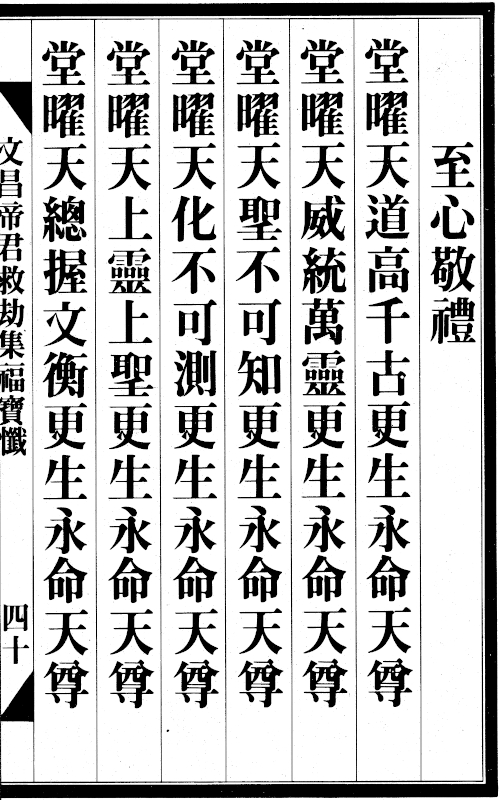 至心敬禮
堂曜天道高千古更生永命天尊
堂曜天威統萬靈更生永命天尊
堂曜天聖不可知更生永命天尊
堂曜天化不可測更生永命天尊
堂曜天上靈上聖更生永命天尊
堂曜天總握文衡更生永命天尊
文昌帝君救劫集福寶懺
四十